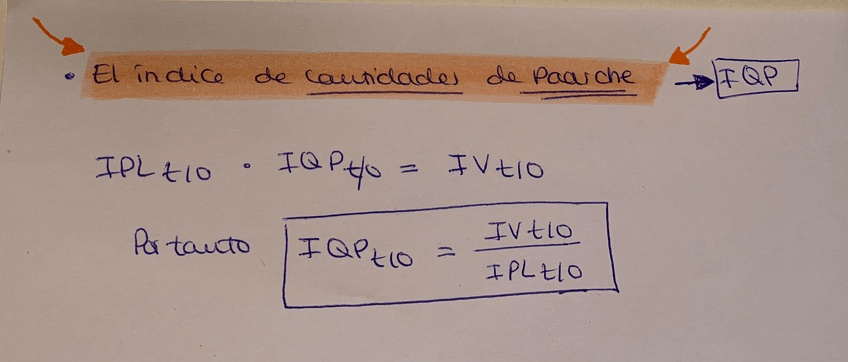 • El índice de cantidades de Paasche → IQP
IPL t/0 · IQP t/0 = IV t/0
Por tanto IQP t/0 = IV t/0 / IPL t/0